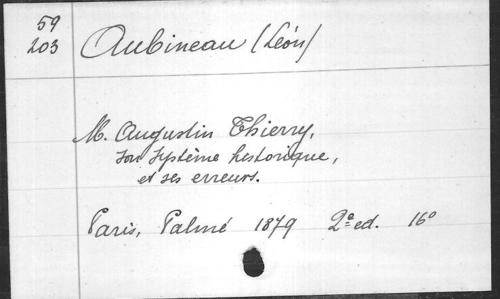 59
203 Aubineau (Léon)
M. Augustin Thierry,
son système historique,
et ses erreurs.
Paris, Palmé 1879 2e ed. 16°